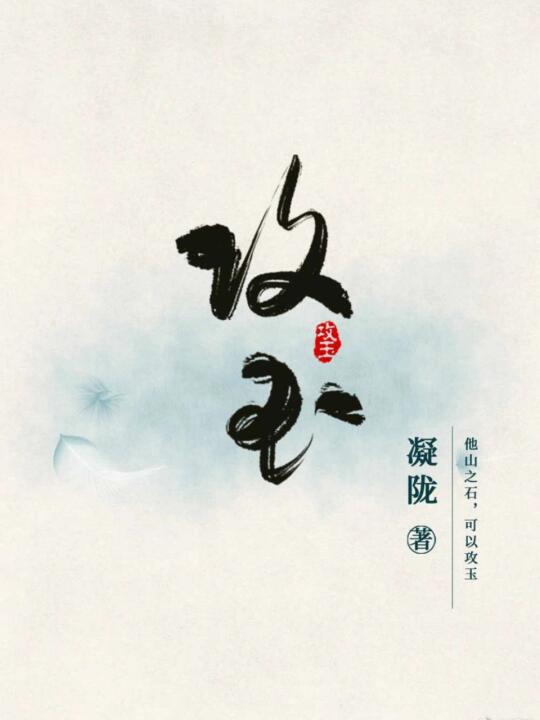 攻玉
攻玉
凝陇 著
他山之石，可以攻玉